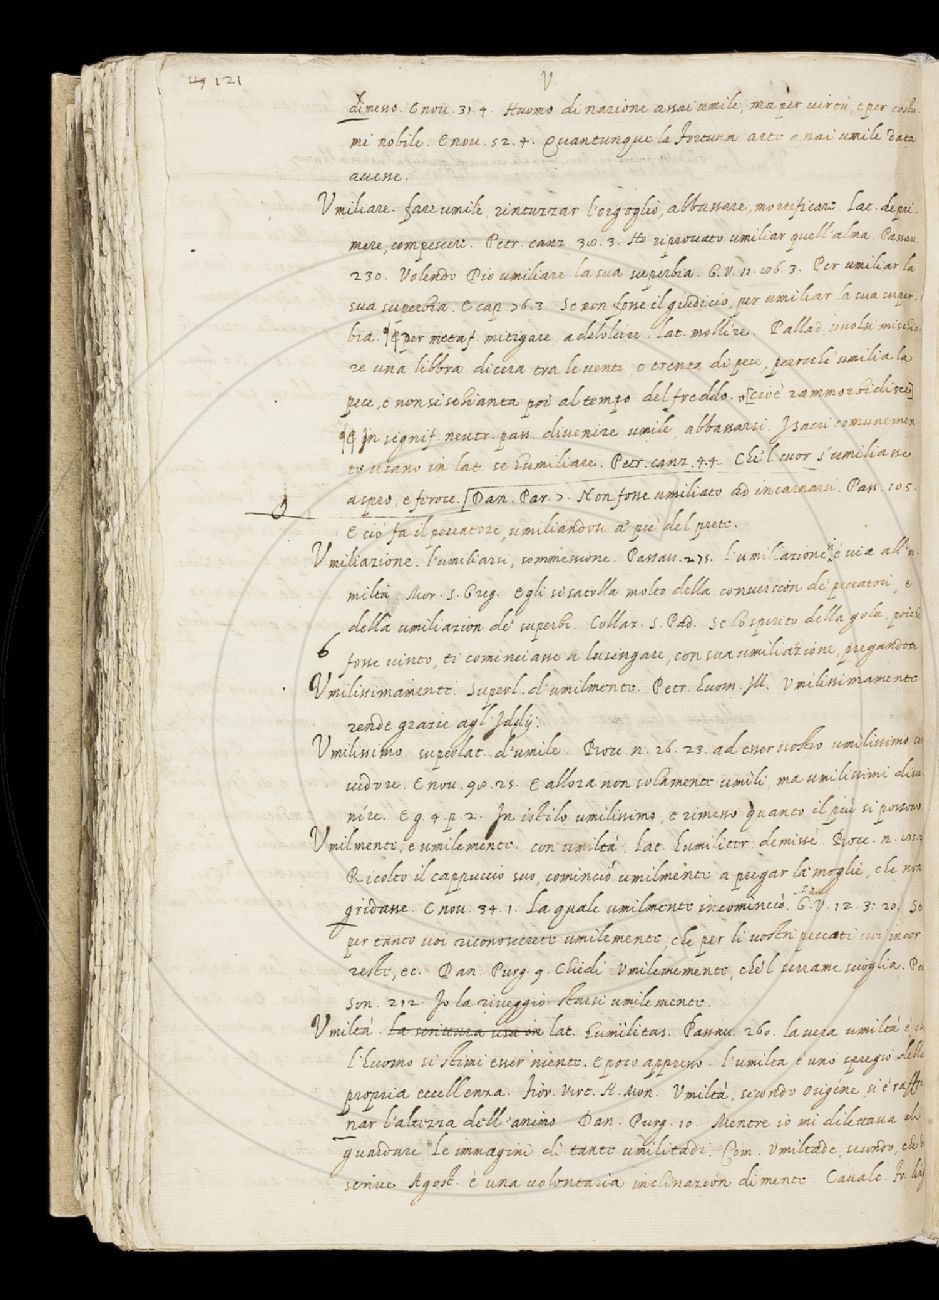 119 121 V
dimesso. E nov. 31. 4. Huomo di nazione assai umile, ma per virtù, e per costu
mi nobile. E nov. 52. 4. Quantunque la fortuna arte assai umile data
avesse.
Umiliare. fare umile, rintuzzar l'orgoglio, abbassare, mortificare. lat. depri
mere, compescere. Petr. canz. 30. 3. Ho riprovato umiliar quell'alma. Passav.
230. Volendo Dio umiliare la sua superbia. G. V. 11. 106. 3. Per umiliar la
sua superbia. E cap. 76. 3. Se non fosse il giudicio, per umiliar la sua super
bia. ¶ per metaf. mitigare, adolcire. lat. mollire. Pallad. vuolsi mischia
re una libbra di cera tra le venti, o trenta di pece, perocch'è umilia la
pece, e non si schianta poi al tempo del freddo. [cioè rammorbidisce]
¶ In signif. neutr. pass. divenire umile, abbassarsi. I sacri comunemen
te usano in lat. se humiliare. Petr. canz. 4. 4. Ch'è'l cuor s'umiliasse
aspro, e feroce. [Dan. Par. 7. Non fosse umiliato ad incarnarsi. Pass. 105.
E ciò fa il peccatore, umiliandosi a' piè del prete.
Umiliazione. l'umiliarsi, sommessione. Passav. 275. l'umiliazione è via all'u
miltà. Mor. S. Greg. Egli si satolla molto della conversion de' peccatori, e
della umiliazion de' superbi. Collaz. S. Pad. Se lo spirito della gola, poich'e
6 fosse vinto, ti cominciasse a lusingare, con sua umiliazione, pregandoti
Umilissimamente. Superl. d'umilmente. Petr. huom. Ill. Umilissimamente
rende grazie agl'Iddij.
Umilissimo. superlat. d'umile. Bocc. n. 26. 23. ad esser vostro umilissimo ser
vidore. E nov. 98. 25. E allora non solamente umili, ma umilissimi dive
nire. E g. 4. p. 2. In istilo umilissimo, e rimesso quanto il più si possono.
Umilmente, e umilemente. con umiltà. lat. humiliter, demisse. Bocc. n.
Ricolto il cappuccio suo, cominciò umilmente a pregar la moglie, che non
gridasse. E nov. 34. 1. La quale umilmente incominciò. G. V. 12. 3. 20. Se
per tanto voi riconoscerete umilemente, che per li vostri peccati
reste, ec. Dan. Purg. 9. Chiedi Umilemente, che'l serrame scioglia. Pe
son. 212. Io la riveggio starsi umilemente.
Umiltà. la scrittura usa in lat. humilitas. Passav. 260. la vera umiltà è ch
l'huomo si stimi esser niente. E poco appresso. l'umiltà è uno spregio della
propria eccellenza. Fior. Virt. A. Mon. Umiltà, secondo Origene, si è raffre
nar l'altezza dell'animo. Dan. Purg. 10. Mentre io mi dilettava di
guardare Le immagini di tante umilitadi. Com. Umiltade, secondo, che
scrive Agost. è una volontaria inclinazion di mente. Cavalc.